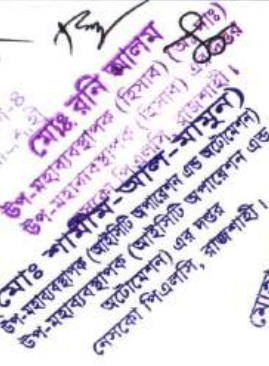 মোঃ রনি আলম
উপ-মহাব্যবস্থাপক (হিসাব) (অঃদাঃ)
উপ-মহাব্যবস্থাপক (হিসাব) এর দপ্তর
নেসকো পিএলসি, রাজশাহী।
মোঃ শামীম-আল-মামুন)
উপ-মহাব্যবস্থাপক (আইসিটি অপারেশন এন্ড অটোমেশন)
উপ-মহাব্যবস্থাপক (আইসিটি অপারেশন এন্ড
অটোমেশন) এর দপ্তর
নেসকো পিএলসি, রাজশাহী।